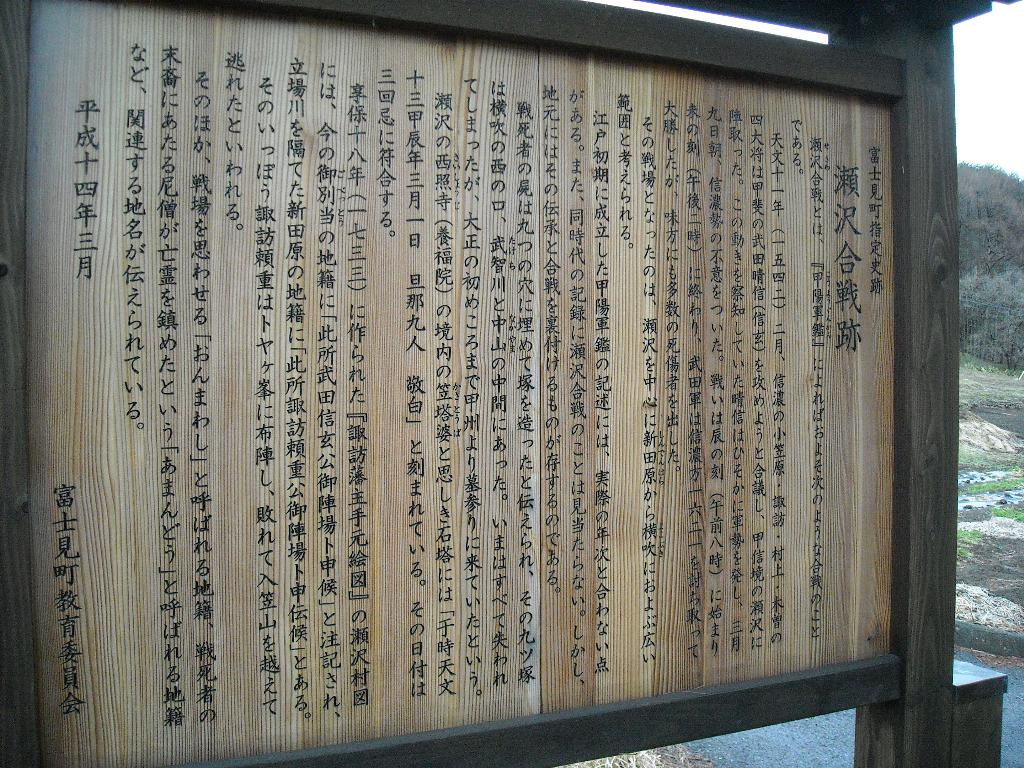 富士見町指定史跡
瀬沢合戦跡
瀬沢合戦とは、『甲陽軍鑑』によればおよそ次のような合戦のこと
である。
天文十一年（一五四二）二月、信濃の小笠原・諏訪・村上・木曽の
四大将は甲斐の武田晴信（信玄）を攻めようと合議し、甲信境の瀬沢に
陣取った。この動きを察知していた晴信はひそかに軍勢を発し、三月
九日朝、信濃勢の不意をついた。戦いは辰の刻（午前八時）に始まり
未の刻（午後二時）に終わり、武田軍は信濃方一六二一を討ち取って
大勝したが、味方にも多数の死傷者を出した。
その戦場となったのは、瀬沢を中心に新田原から横吹におよぶ広い
範囲と考えられる。
江戸初期に成立した甲陽軍鑑の記述には、実際の年次と合わない点
がある。また、同時代の記録に瀬沢合戦のことは見当たらない。しかし、
地元にはその伝承と合戦を裏付けるものが存するのである。
戦死者の屍は九つの穴に埋めて塚を造ったと伝えられ、その九ツ塚
は横吹の西の口、武智川と中山の中間にあった。いまはすべて失われ
てしまったが、大正の初めころまで甲州より墓参りに来ていたという。
瀬沢の西照寺（養福院）の境内の笠塔婆と思しき石塔には「于時天文
十三甲辰年三月一日　旦那九人　敬白」と刻まれている。その日付は
三回忌に符合する。
享保十八年（一七三三）に作られた『諏訪藩主手元絵図』の瀬沢村図
には、今の御別当の地籍に「此所武田信玄公御陣場ト申候」と注記され、
立場川を隔てた新田原の地籍に「此所諏訪頼重公御陣場ト申伝候」とある。
そのいっぽう諏訪頼重はトヤヶ峯に布陣し、敗れて入笠山を越えて
逃れたといわれる。
そのほか、戦場を思わせる「おんまわし」と呼ばれる地籍、戦死者の
末裔にあたる尼僧が亡霊を鎮めたという「あまんどう」と呼ばれる地籍
など、関連する地名が伝えられている。
平成十四年三月
富士見町教育委員会